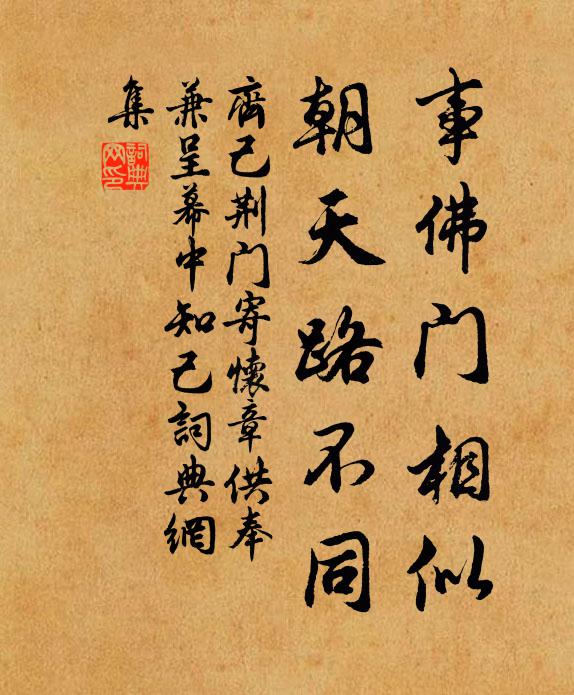 事佛门相似
朝天路不同
齊己荆门寄懷章供奉
兼呈幕中知己詞典網
集
詞典
网印